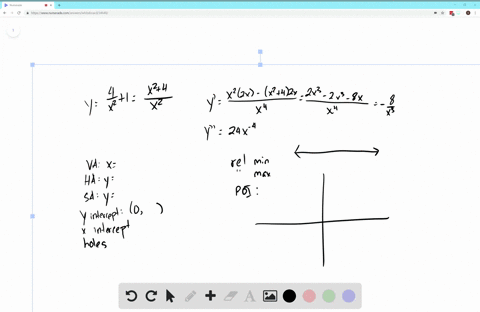 y = 4/x² + 1 = (x²+4)/x²
y' = (x²(2x) - (x²+4)2x)/x⁴ = (2x³ - 2x³ - 8x)/x⁴ = -8/x³
y'' = 24x⁻⁴
VA: x=
HA: y=
SA: y=
y intercept: (0, )
x intercept
holes
rel min
" max
POI:
A